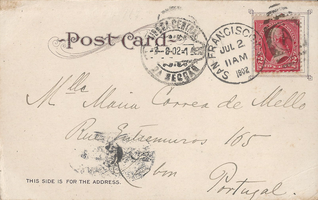 Post Card
SAN FRANCISCO
JUL 2
11AM
1902
2 2
Mlle Maria Correa de Mello
Rua Entremuros 165
bon
Portugal.
THIS SIDE IS FOR THE ADDRESS.